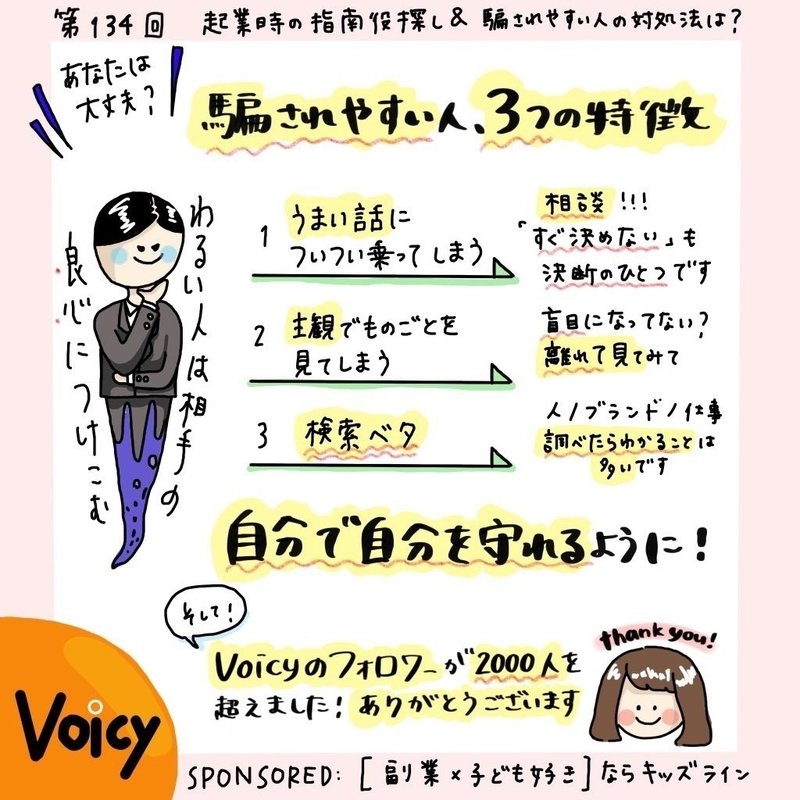 第134回 起業時の指南役探し& 騙されやすい人の対処法は?
あなたは
大丈夫?
騙されやすい人、3つの特徴
わるい人は相手の
良心につけこむ
1 うまい話に
ついつい乗ってしまう
相談!!!
「すぐ決めない」も
決断のひとつです
2 主観でものごとを
見てしまう
盲目になってない?
離れて見てみて
3 検索ベタ
人/ブランド/仕事
調べたらわかることは
多いです
自分で自分を守れるように!
そして!
Voicyのフォロワーが2000人を
超えました!ありがとうございます
thank you!
Voicy
SPONSORED: [副業×子ども好き]ならキッズライン